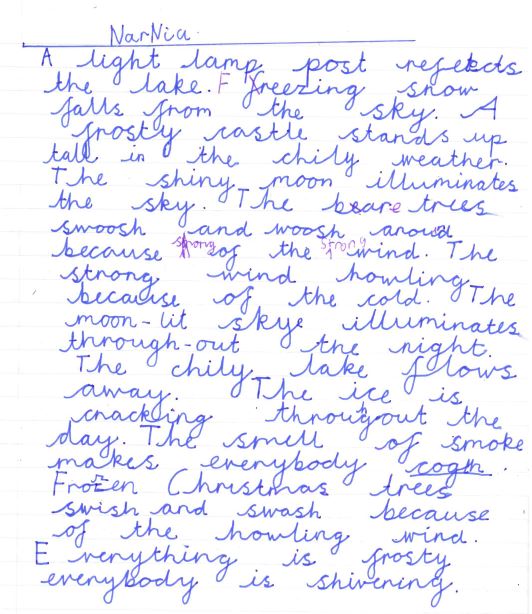 NarNia.
A light lamp post refelects
the lake. F freezing snow
falls from the sky. A
frosty castle stands up
tall in the chily weather.
The shiny moon illuminates
the sky. The bare trees
swoosh and woosh around
because strong of the strong wind. The
strong wind howling
because of the cold. The
moon-lit skye illuminates
through-out the night.
The chily lake flows
away. The ice is
cracking throughout the
day. The smell of smoke
makes everybody cogh.
Frozen Christmas trees
swish and swash because
of the howling wind.
E verything is frosty
everybody is shivering.